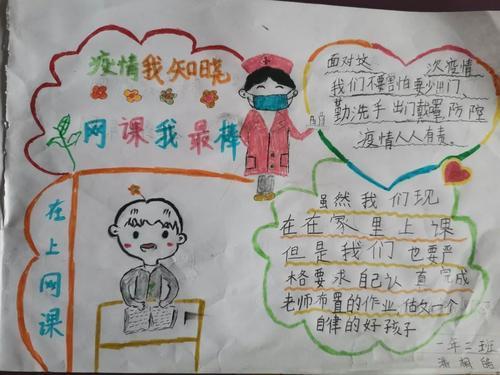 疫情我知晓
网课我最棒
面对这次疫情
我们不要害怕要少出门
勤洗手出门戴罩防控
疫情人人有责
在上网课
虽然我们现
在在家里上课
但是我们也要严
格要求自己认真完成
老师布置的作业,做一个
自律的好孩子
一年三班